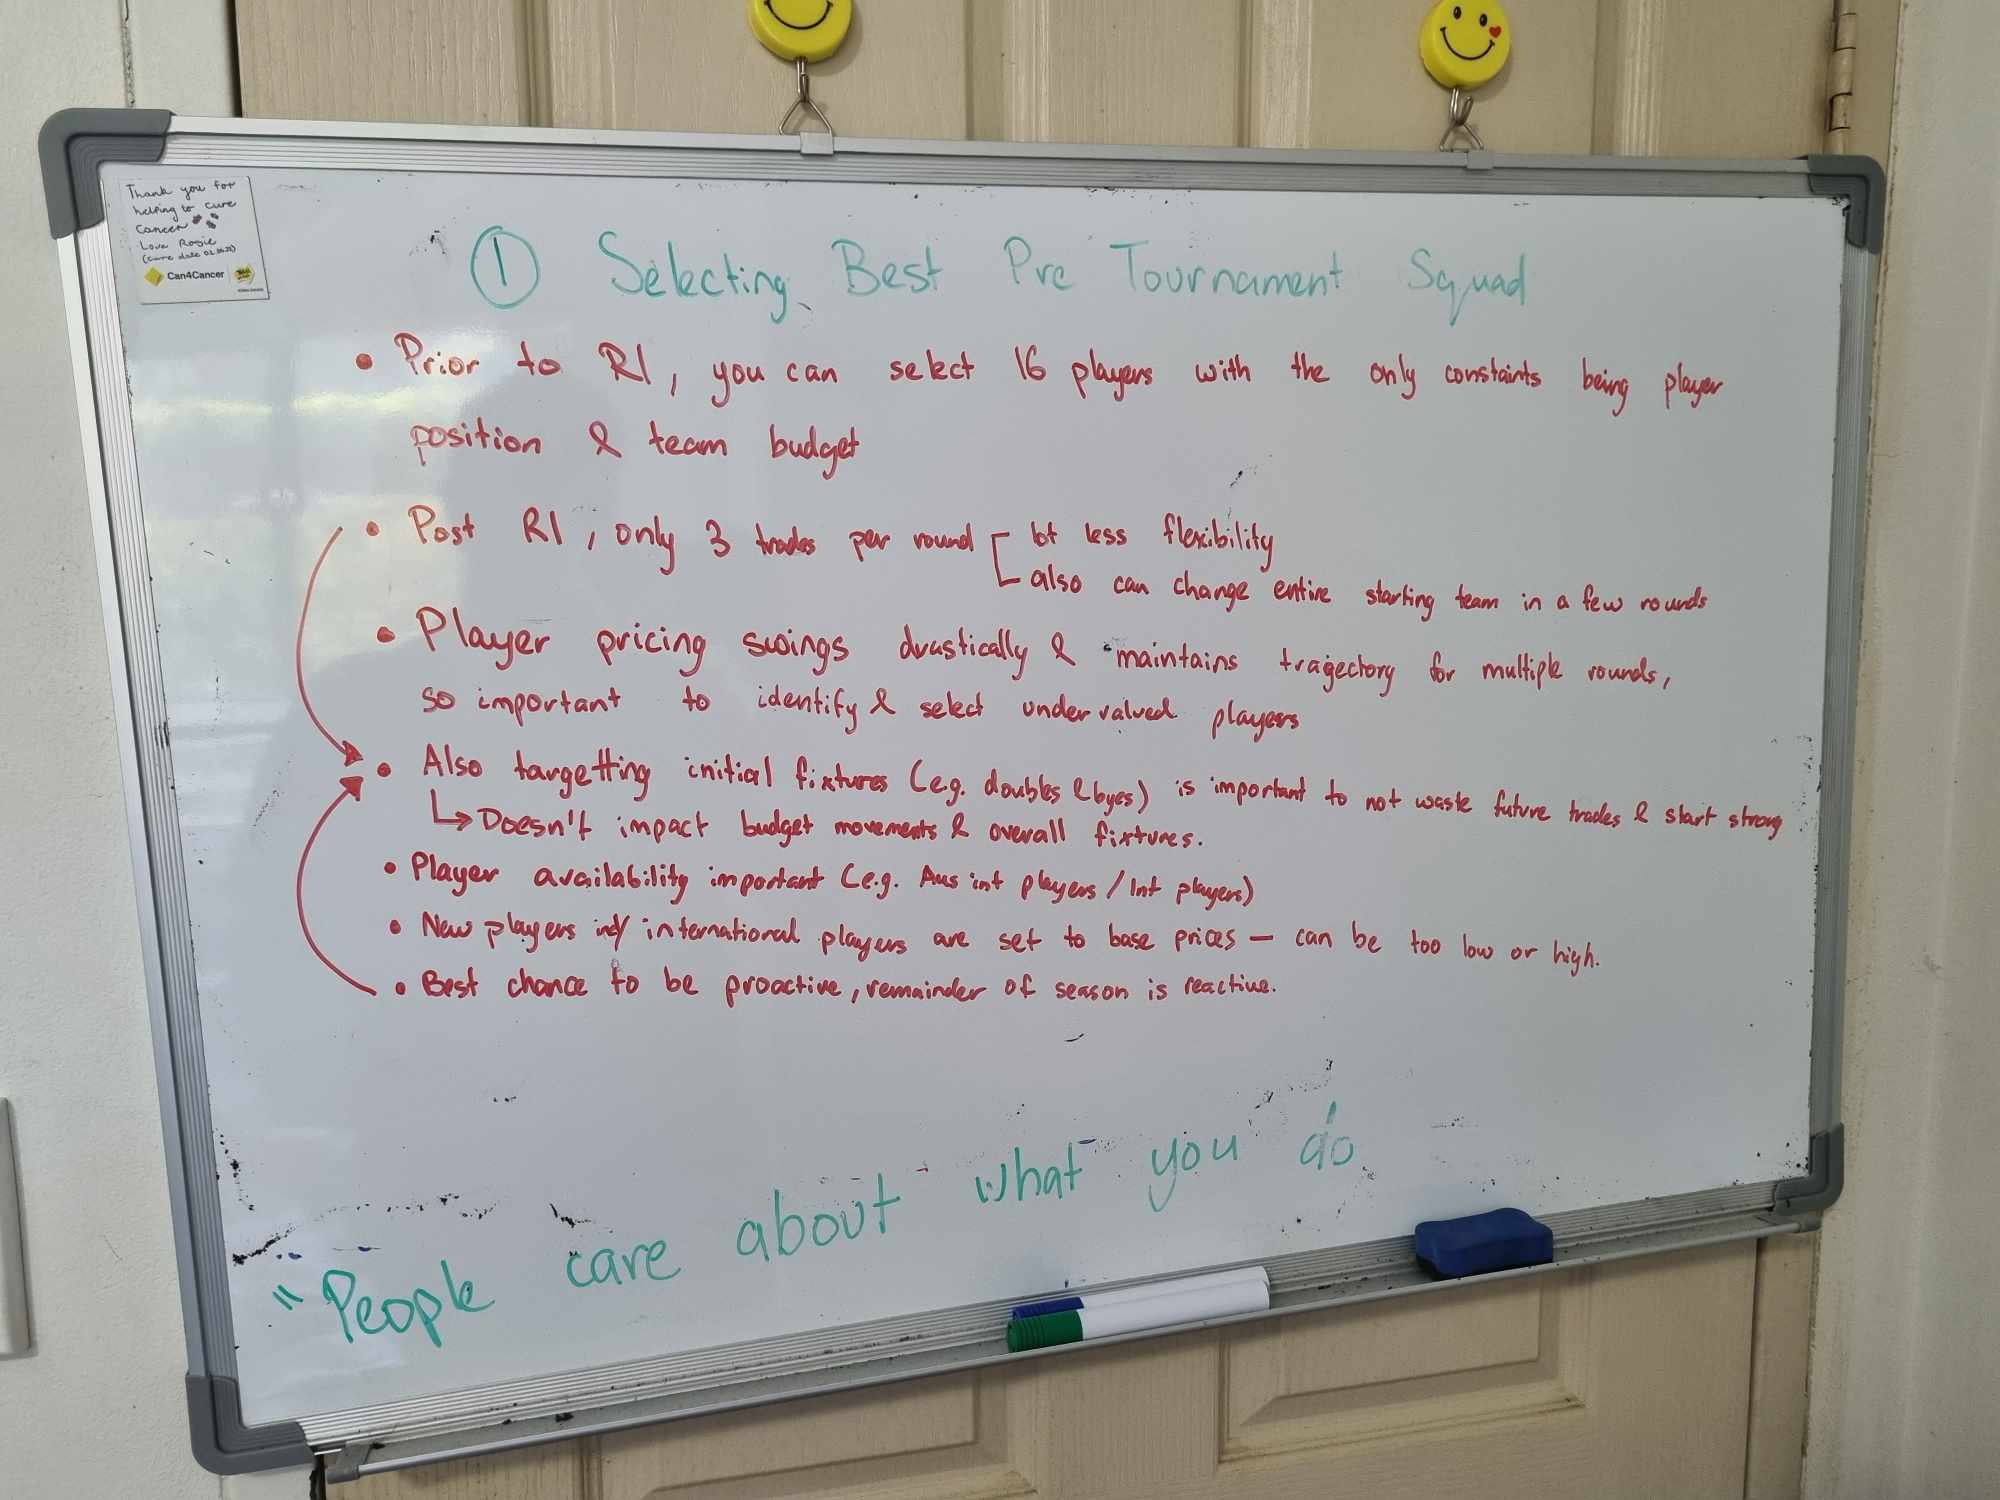 Thank you for
helping to cure
cancer
Love Rosie
Can4Cancer
① Selecting Best Pre Tournament Squad
• Prior to R1, you can select 16 players with the only constaints being player
position & team budget
• Post R1, only 3 trades per round
lot less flexibility
also can change entire starting team in a few rounds
• Player pricing swings drastically & maintains trajectory for multiple rounds,
so important to identify & select undervalued players
• Also targetting initial fixtures (e.g. doubles & byes) is important to not waste future trades & start strong
↳ Doesn't impact budget movements & overall fixtures.
• Player availability important (e.g. Aus int players / Int players)
• New players international players are set to base prices – can be too low or high.
• Best chance to be proactive, remainder of season is reactive.
"People care about what you do